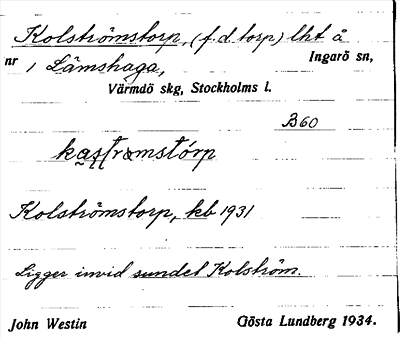 Kolströmstorp, (f. d. torp) lht å
nr 1 Lämshaga, Ingarö sn,
Värmdö skg, Stockholms l.
B60
Kolströmstorp, kb 1931
Ligger invid sundet Kolström.
John Westin Gösta Lundberg 1934.